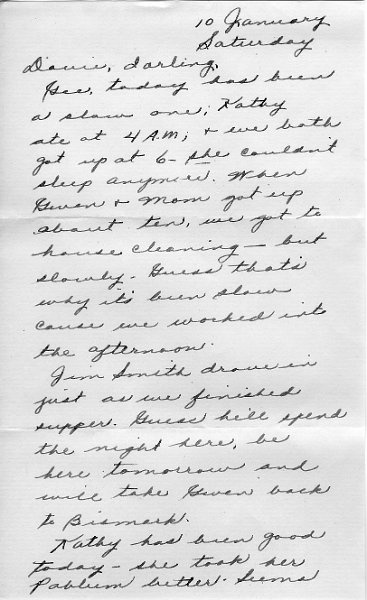 10 January
Saturday
Davie, darling,
Gee, today has been
a slow one; Kathy
ate at 4 A.M; & we both
got up at 6 - she couldn't
sleep anymore. When
Gwen & Mom got up
about ten, we got to
house cleaning - but
slowly. Guess that's
why it's been slow
cause we worked into
the afternoon.
Jim Smith drove in
just as we finished
supper. Guess he'll spend
the night here, be
here tomorrow and
will take Gwen back
to Bismark.
Kathy has been good
today - she took her
Pablum better. Seems